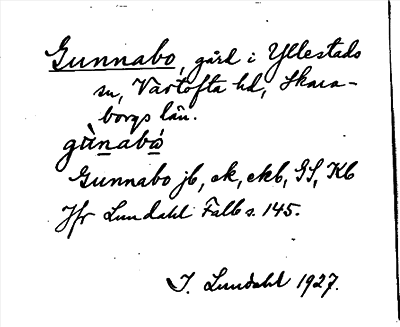 Gunnabo, gård i Yllestads
sn, Vartofta hd, Skara-
borgs län.
gùnabó
Gunnabo jb, ek, ekb, GS, Kb
Jfr Lundahl Falb s. 145.
I. Lundahl 1927.